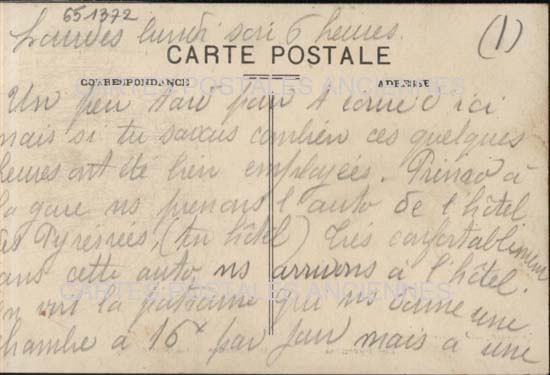 651372
Lourdes lundi soir 6 heures.
(1)
CARTE POSTALE
CORRESPONDANCE
ADRESSE
CARTES POSTALES ANCIENNES
Un peu tard pour t'écrire d'ici
mais si tu savais combien ces quelques
heures ont été bien employées. à
la gare ns prenons l'auto de l'hôtel
des Pyrénées, (tu hôtel) très confortablement
dans cette auto, ns arrivons à l'hôtel.
CARTES POSTALES ANCIENNES
on voit la patronne qui ns donne une
chambre à 16 par jour mais à une